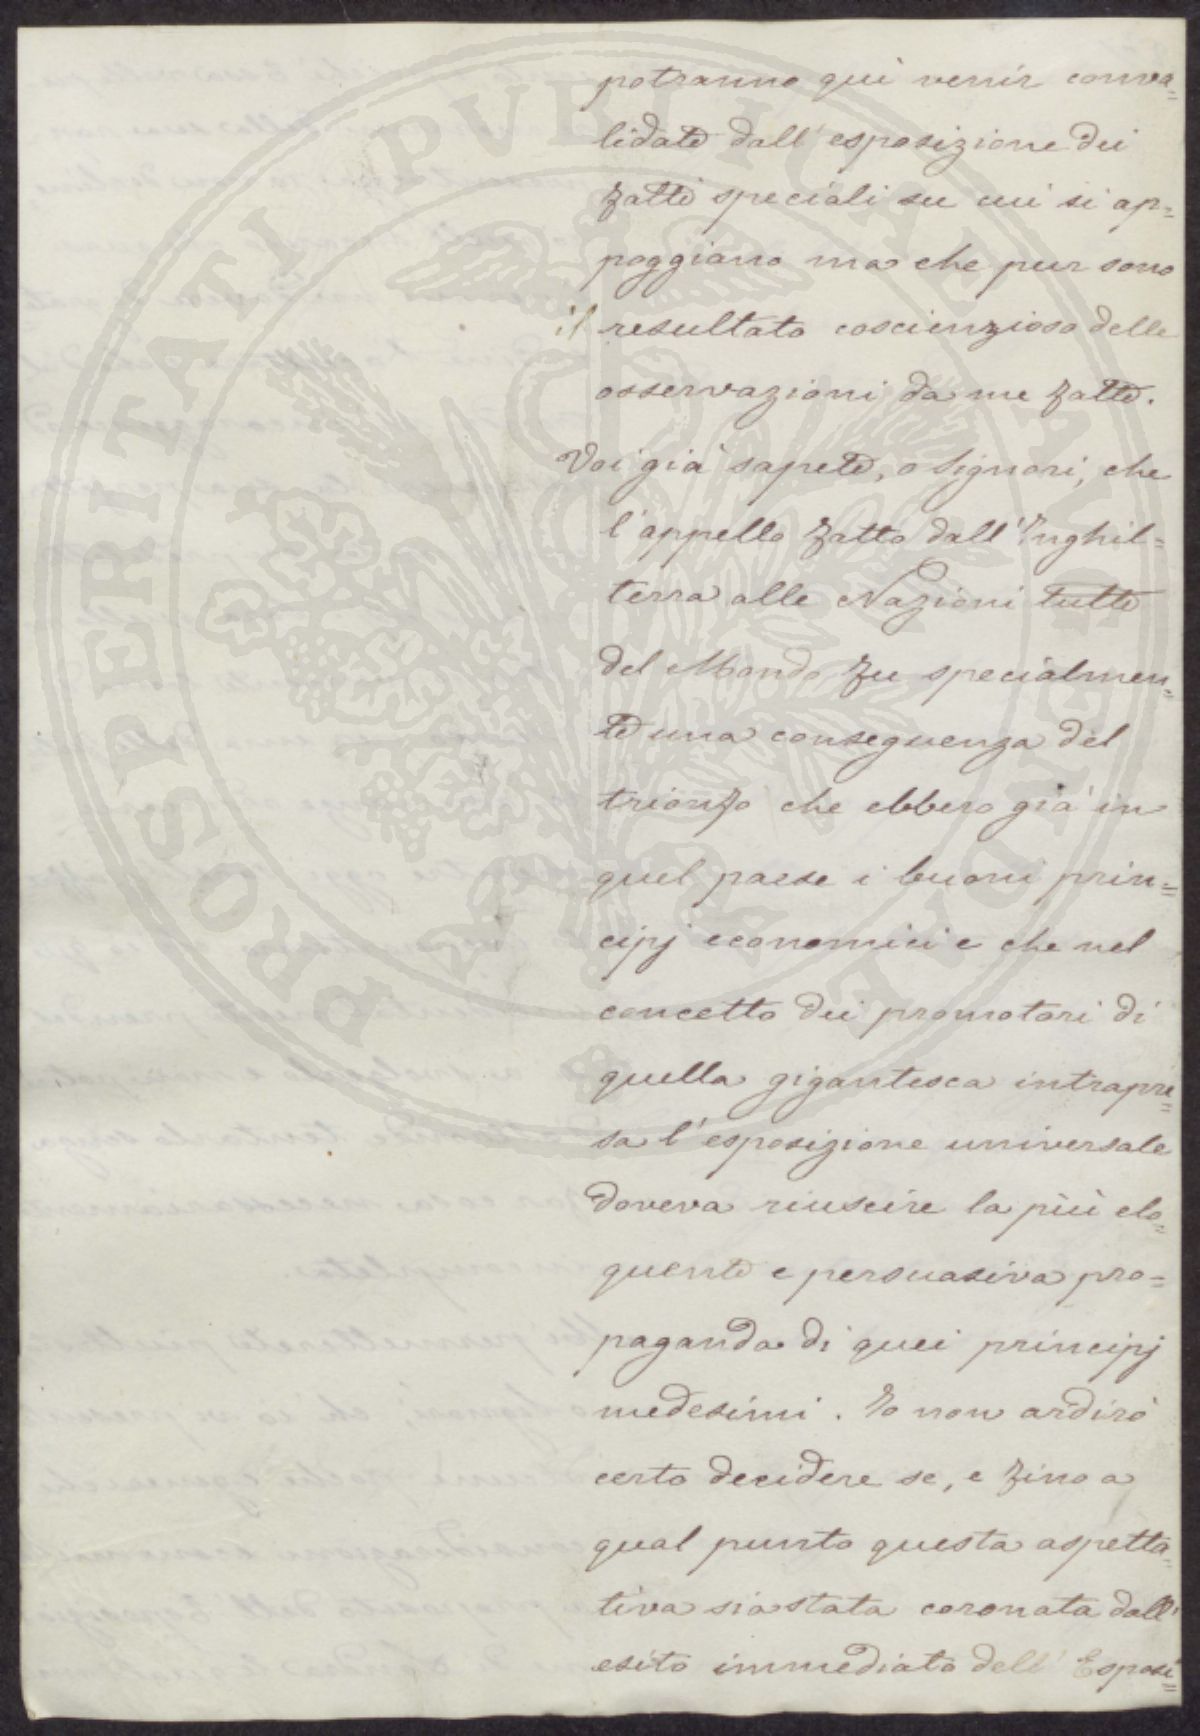 potranno quì venir conva=
lidate dall'esposizione dei
fatti speciali su cui si ap=
poggiano ma che pur sono
il resultato coscienzioso delle
osservazioni da me fatte.
Voi già sapete, o Signori, che
l'appello fatto dall'Inghil=
terra alle Nazioni tutte
del Mondo fu specialmen=
te una conseguenza del
trionfo che ebbero già in
quel paese i buoni prin=
cipj economici e che nel
concetto dei promotori di
quella gigantesca intrapre=
sa l'esposizione universale
doveva riuscire la più elo=
quente e persuasiva pro=
paganda di quei principj
medesimi. Io non ardirò
certo decidere se, e fino a
qual punto questa aspetta=
tiva sia stata coronata dall'
esito immediato dell'Esposi=
PROSPERITATI PUBLICAE AUGENDAE